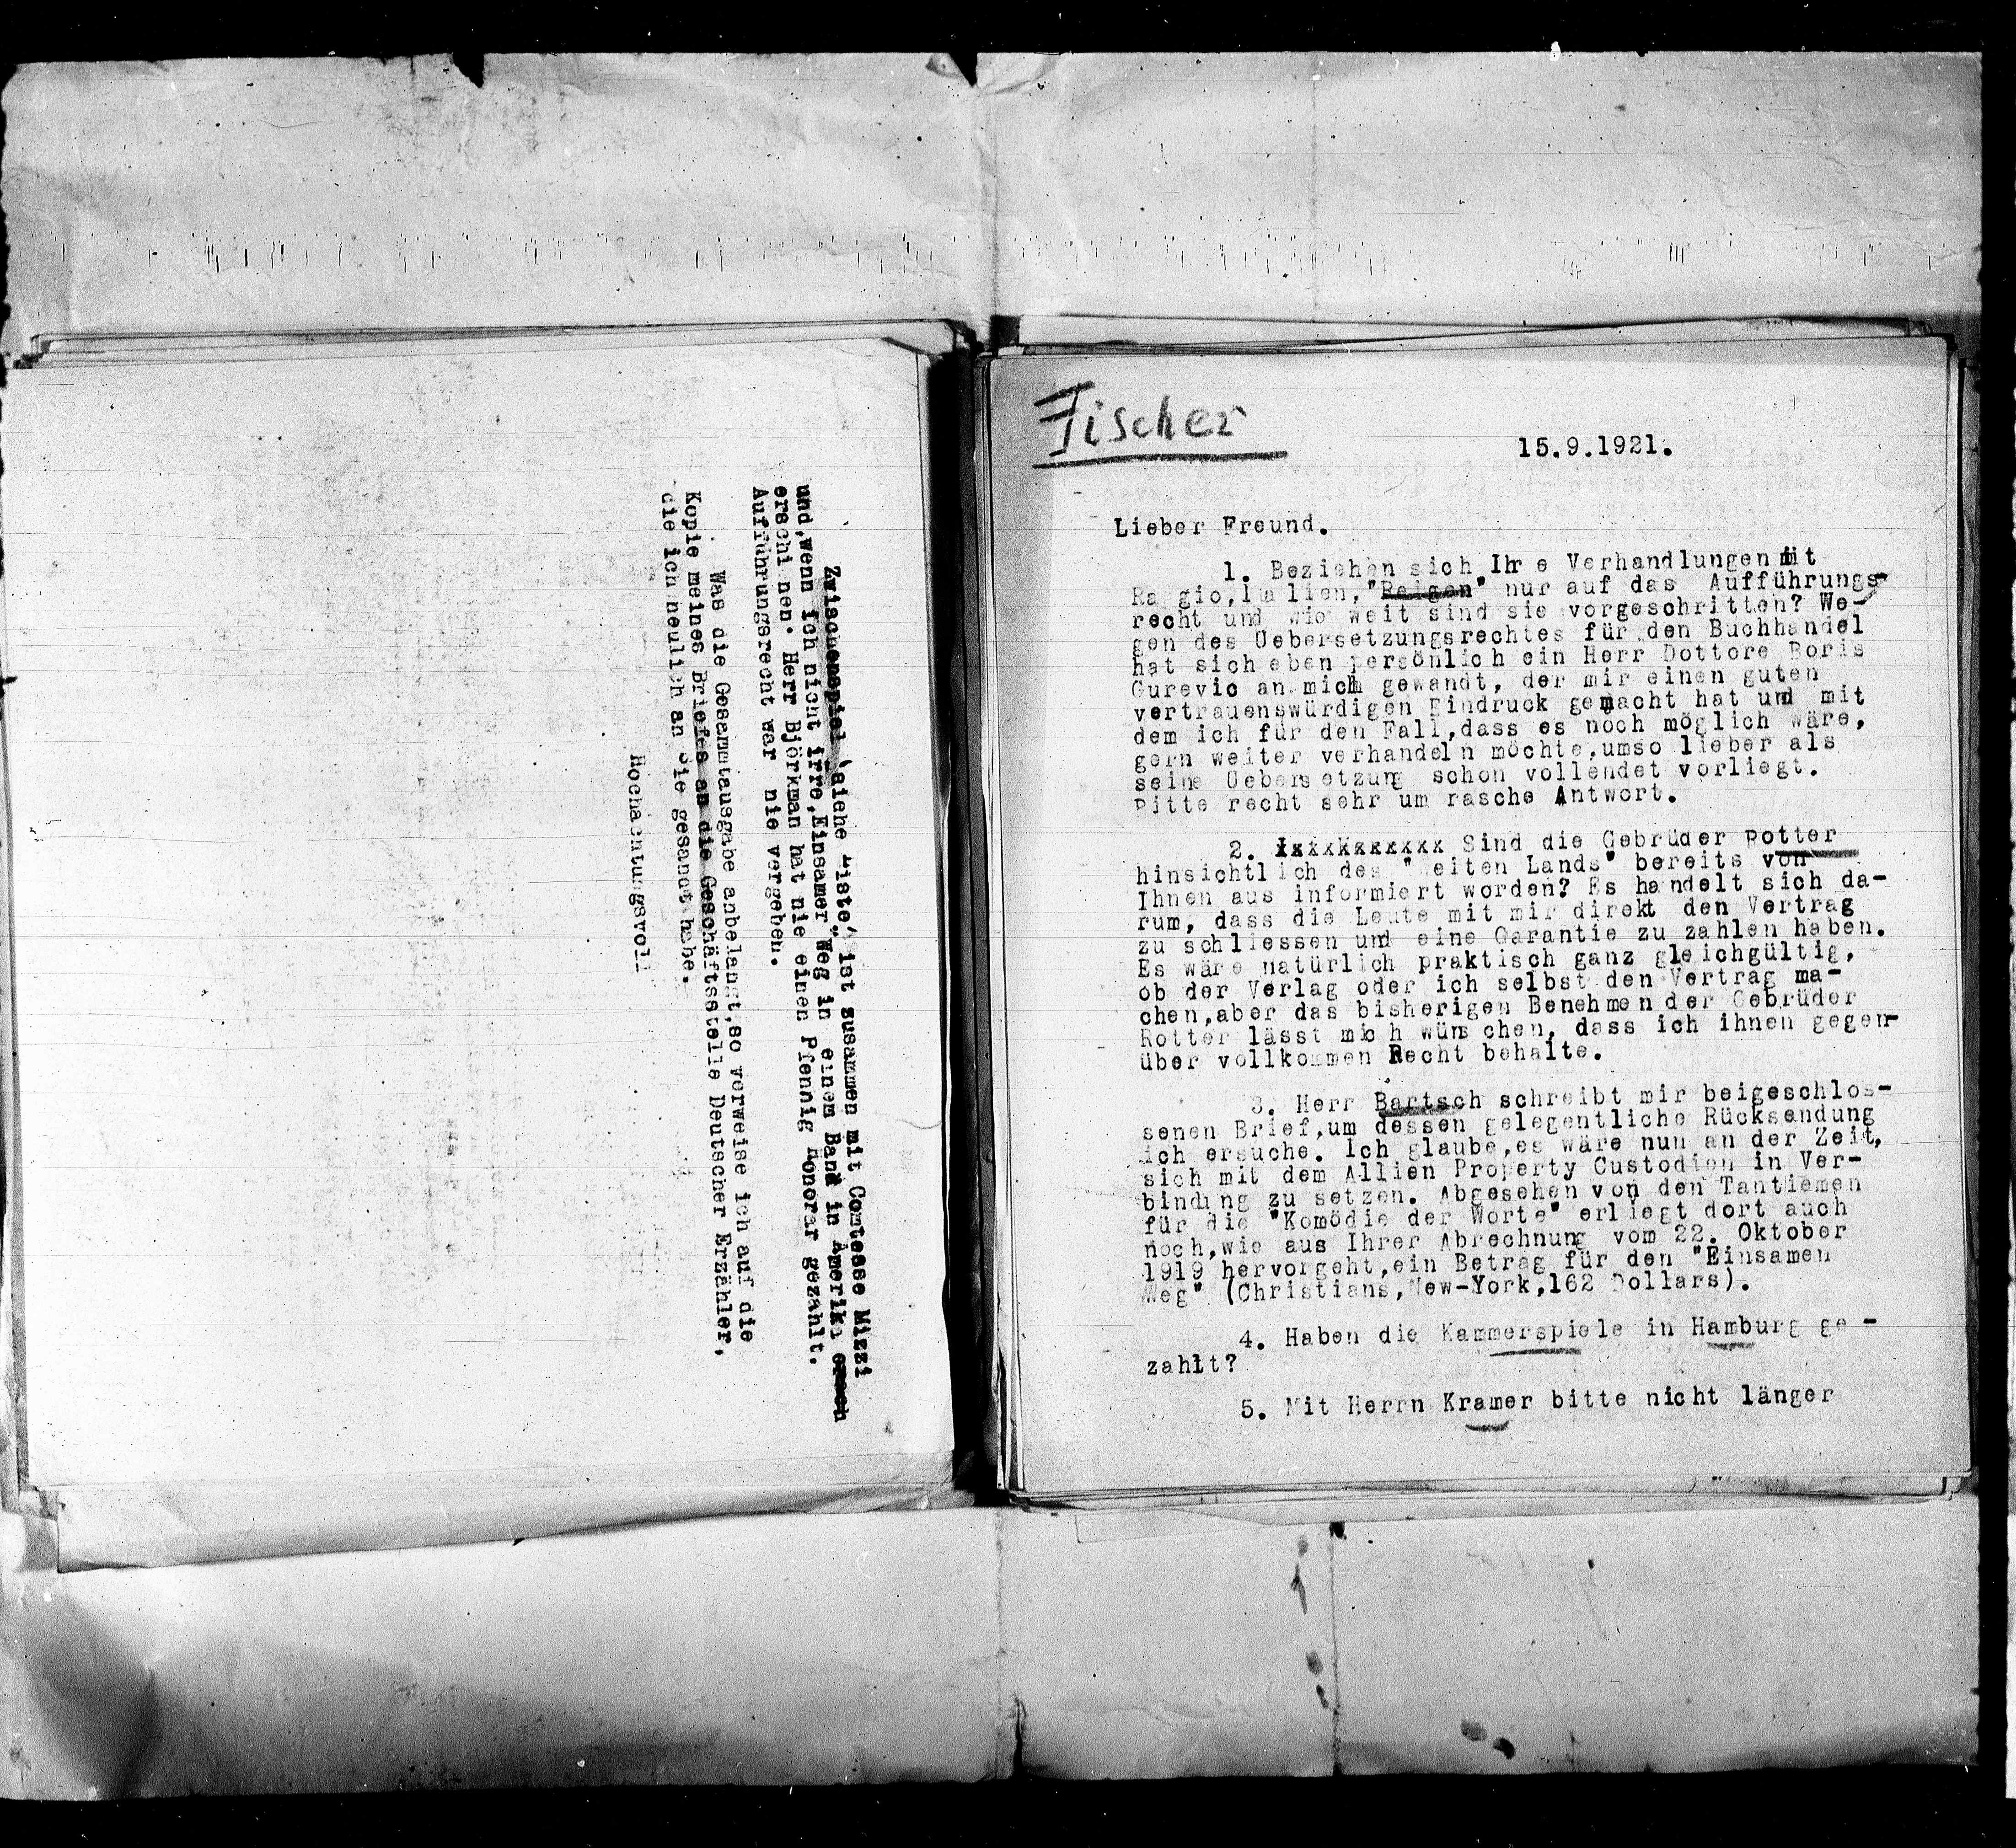 Zwischenspiel (siehe Liste) ist zusammen mit Comtesse Mizzi
und,wenn ich nicht irre,Einsamer Weg in einem Band in Amerika
erschi nen. Herr Björkman hat nie einen Pfennig Honorar gezahlt.
Aufführungsrecht war nie vergeben.
Was die Gesammtausgabe anbelangt,so verweise ich auf die
Kopie meines Briefes an die Geschäftsstelle Deutscher Erzähler,
die ich neulich an Sie gesandt habe.
Hochachtungsvoll
Fischer
15.9.1921.
Lieber Freund.
1. Beziehen sich Ihre Verhandlungen mit
Raggio,Italien,"Reigen" nur auf das Aufführungs-
recht und wie weit sind sie vorgeschritten? We-
gen des Uebersetzungsrechtes für den Buchhandel
hat sich eben persönlich ein Herr Dottore Boris
Gurevic an mich gewandt, der mir einen guten
vertrauenswürdigen Eindruck gemacht hat und mit
dem ich für den Fall,dass es noch möglich wäre,
gern weiter verhandeln möchte,umso lieber als
seine Uebersetzung schon vollendet vorliegt.
Bitte recht sehr um rasche Antwort.
2. Sind die Gebrüder Rotter
hinsichtlich des "Weiten Lands" bereits von
Ihnen aus informiert worden? Es handelt sich da-
rum, dass die Leute mit mir direkt den Vertrag
zu schliessen und eine Garantie zu zahlen haben.
Es wäre natürlich praktisch ganz gleichgültig,
ob der Verlag oder ich selbst den Vertrag ma-
chen,aber das bisherigen Benehmen der Gebrüder
Rotter lässt mich wünschen, dass ich ihnen gegen-
über vollkommen Recht behalte.
3. Herr Bartsch schreibt mir beigeschlos-
senen Brief,um dessen gelegentliche Rücksendung
ich ersuche. Ich glaube,es wäre nun an der Zeit,
sich mit dem Allien Property Custodien in Ver-
bindung zu setzen. Abgesehen von den Tantiemen
für die "Komödie der Worte" erliegt dort auch
noch,wie aus Ihrer Abrechnung vom 22. Oktober
1919 hervorgeht,ein Betrag für den "Einsamen
Weg" (Christians,New-York,162 Dollars).
4. Haben die Kammerspiele in Hamburg ge -
zahlt?
5. Mit Herrn Kramer bitte nicht länger